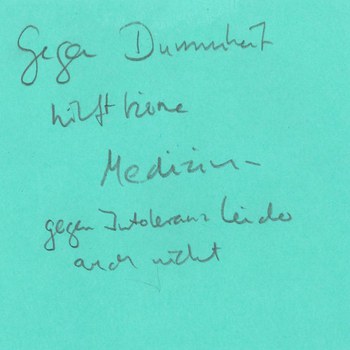 Gegen Dummheit
hilft keine
Medizin -
gegen Intoleranz leider
auch nicht